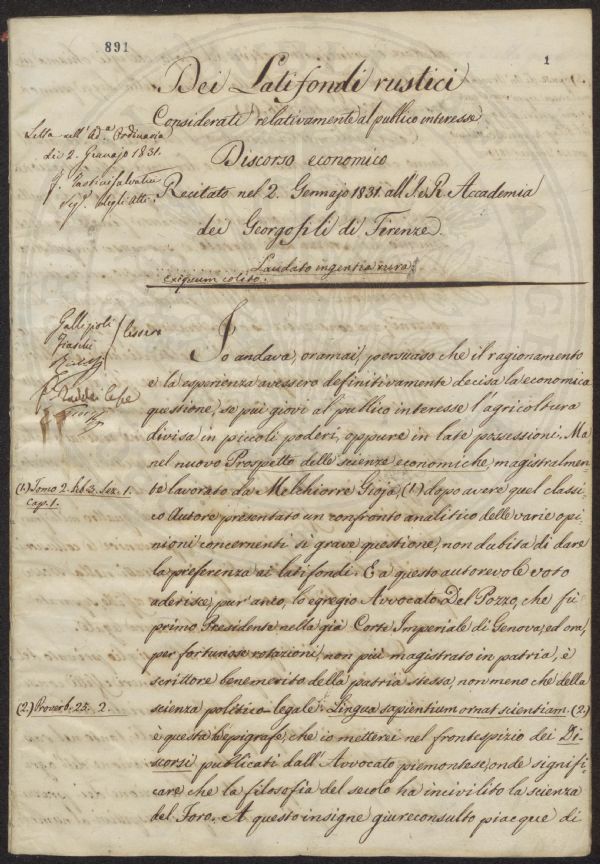 891
1
Dei Latifondi rustici
Considerati relativamente al publico interesse
Discorso economico
Recitato nel 2. Gennajo 1831. all'I. e R. Accademia
dei Georgofili di Firenze.
Laudato ingentia rura:
exiguum colito.
Letta nell'Ad.a Ordinaria
dei 2. Gennajo 1831.
Seg.o degli Atti
Gallizioli
lessero
Io andava, oramai, persuaso che il ragionamento
e la esperienza avessero definitivamente decisa la economica
questione, se più giovi al publico interesse l'agricoltura
divisa in piccoli poderi, oppure in late possessioni. Ma
nel nuovo Prospetto delle scienze economiche, magistralmen
(1.) Tomo 2. lib. 3. Sez. 1.
Cap. 1.
te lavorato da Melchiorre Gioja, (1.) dopo avere quel classi
co Autore presentato un confronto analitico delle varie opi
nioni concernenti sì grave questione, non dubita di dare
la preferenza ai latifondi. E a questo autorevole voto
aderisce, pur'anco, lo egregio Avvocato Del Pozzo, che fù
primo Presidente nella già Corte Imperiale di Genova, ed ora,
per fortunose rotazioni, non più magistrato in patria, è
scrittore benemerito della patria stessa, non meno che della
(2.) Proverb. 25. 2.
scienza politico-legale. Lingua sapientium ornat scientiam (2.)
è questa l'epigrafe, che io metterei nel frontespizio dei Di
scorsi publicati dall'Avvocato piemontese, onde signifi
care che la filosofia del secolo ha incivilito la scienza
del Foro. A questo insigne giureconsulto piacque di